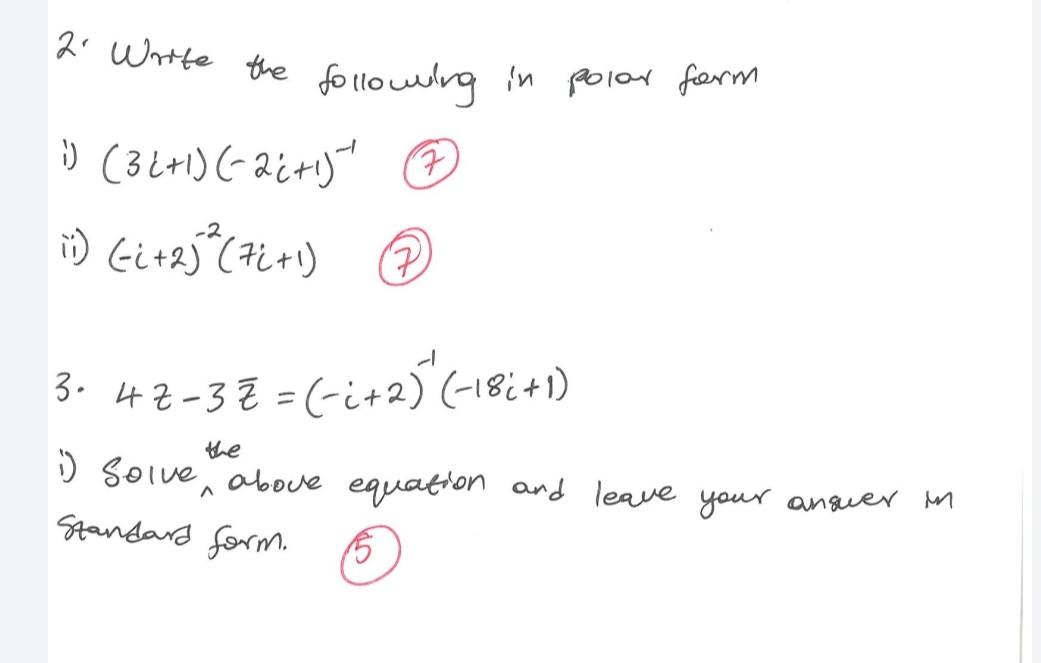 2. Write the following in polar form
i) (3i+1)(-2i+1)⁻¹ 7
ii) (-i+2)⁻²(7i+1) 7
3. 4z-3z̄ = (-i+2)⁻¹(-18i+1)
i) Solve the above equation and leave your answer in
Standard form. 5